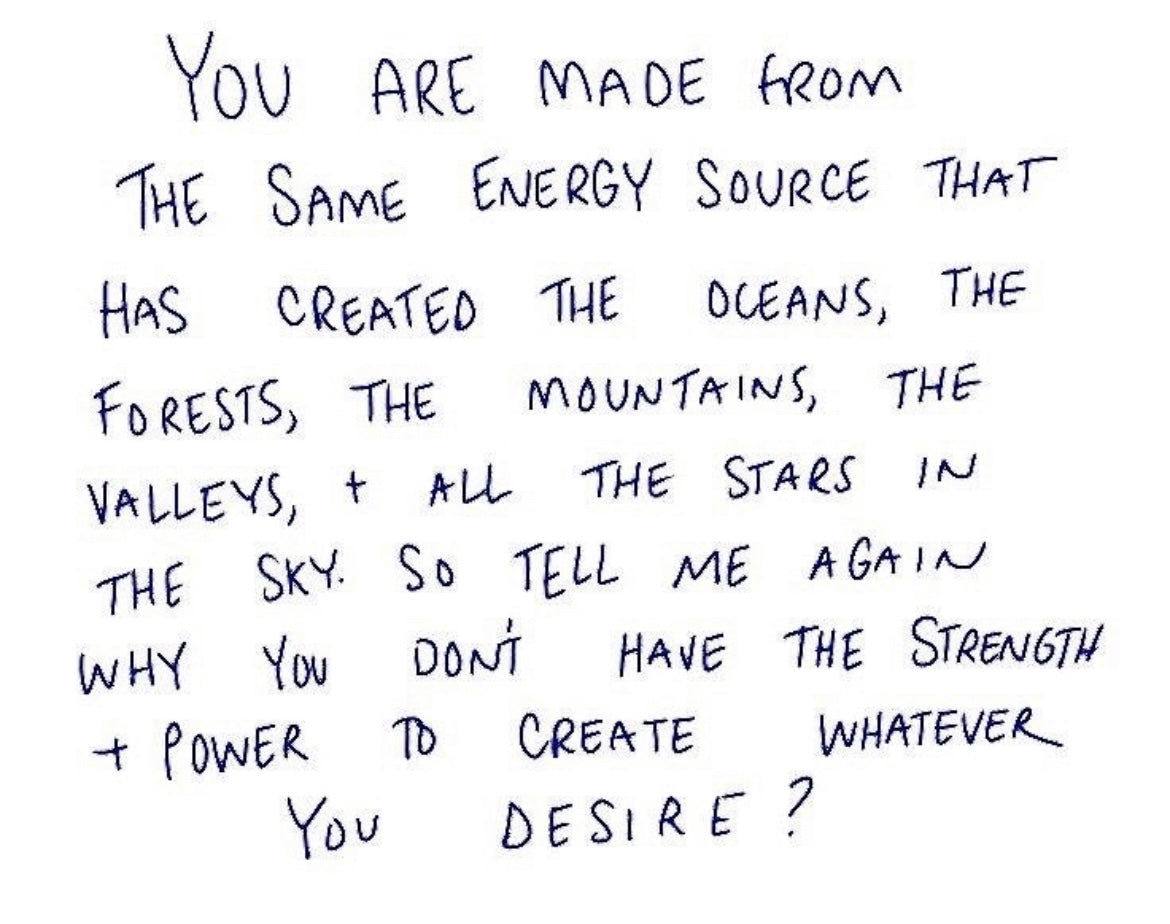 YOU ARE MADE FROM
THE SAME ENERGY SOURCE THAT
HAS CREATED THE OCEANS, THE
FORESTS, THE MOUNTAINS, THE
VALLEYS, + ALL THE STARS IN
THE SKY. SO TELL ME AGAIN
WHY YOU DON'T HAVE THE STRENGTH
+ POWER TO CREATE WHATEVER
YOU DESIRE?